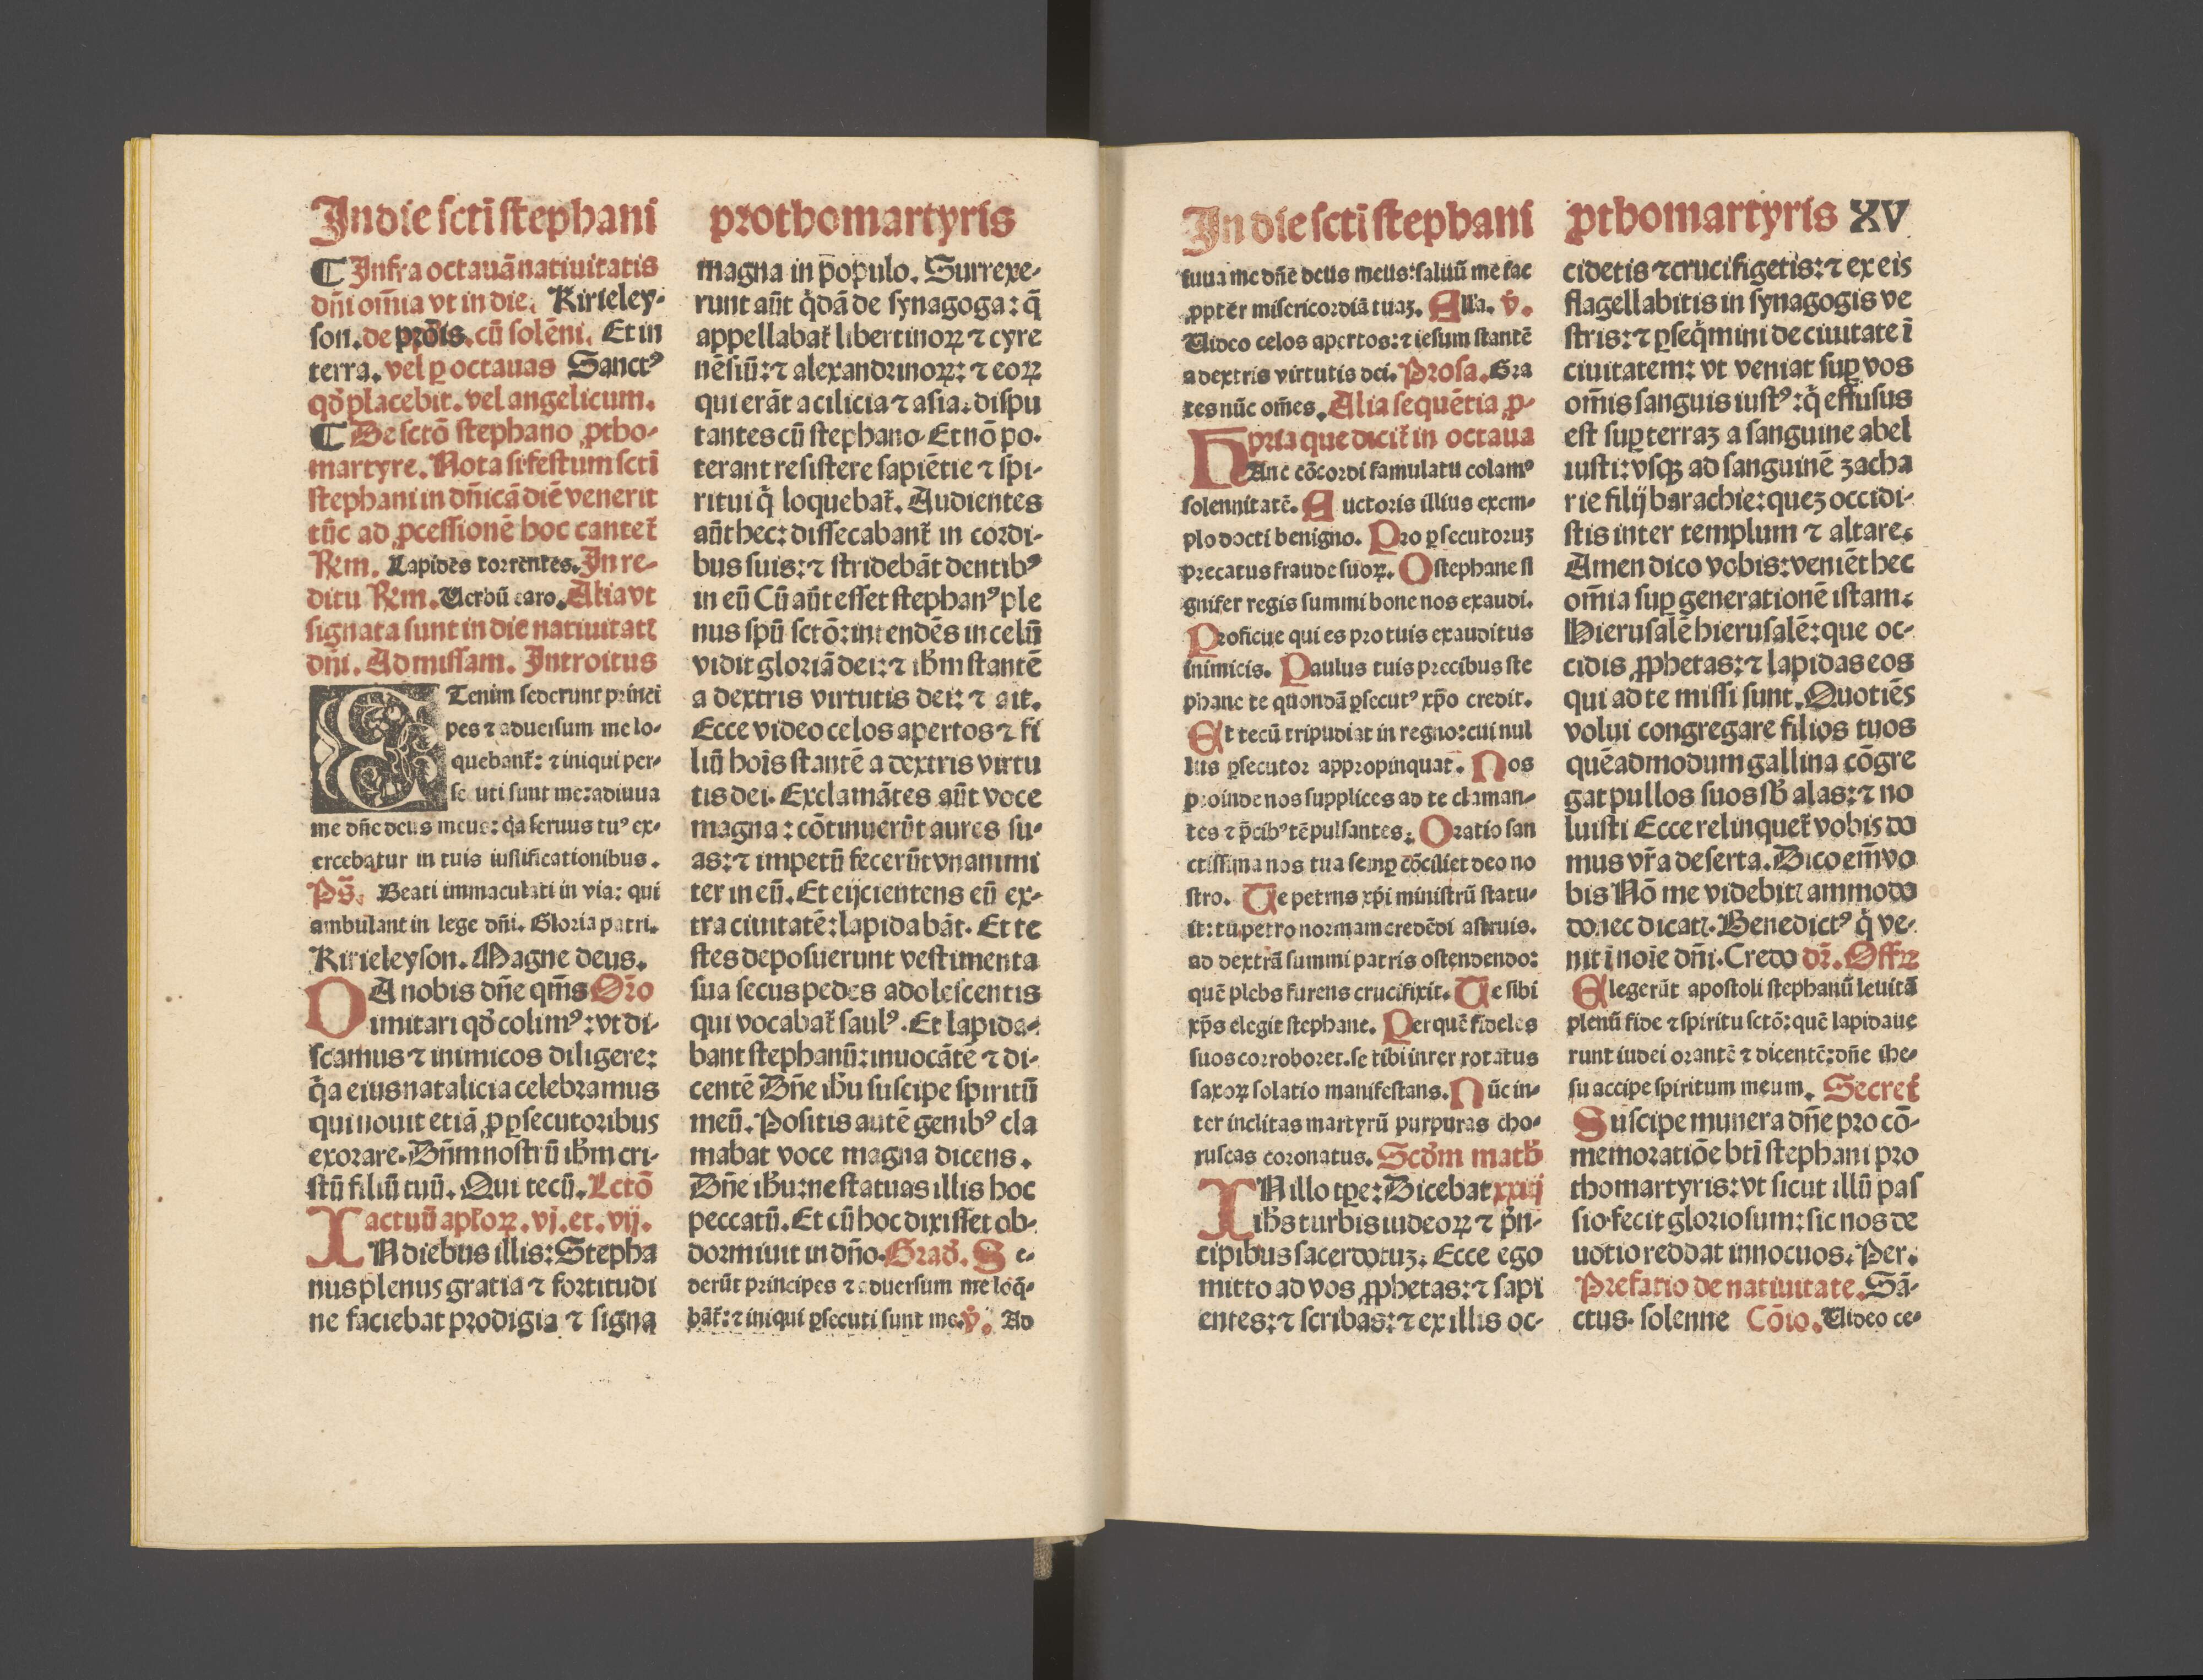 In die scti stephani
prothomartyris
¶ Infra octauā natiuitatis
dn̄i om̄ia vt in die. Kirieley-
son. de p̄dis. cū solēni. Et in
terra. vel ꝑ octauas Sanctꝰ
qd̄ placebit. vel angelicum.
¶ De sctō stephano ꝓtho-
martyre. Nota si festum scti
stephani in dn̄icā diē venerit
tūc ad ꝓcessionē hoc cantet᷑
Rm̄. Lapides torrentes. In re-
ditu Rm̄. Verbū caro. Alia vt
signata sunt in die natiuitatꝭ
dn̄i. Ad missam. Introitus
ETenim sederunt princi
pes ⁊ aduersum me lo-
quebant᷑: ⁊ iniqui per-
secuti sunt me: adiuua
me dn̄e deus meus: q̇a seruus tuꝰ ex-
ercebatur in tuis iustificationibus.
Ps̄. Beati immaculati in via: qui
ambulant in lege dn̄i. Gloria patri.
Kirieleyson. Magne deus.
DA nobis dn̄e qm̄s Or̄o
imitari qd̄ colimꝰ: vt di-
scamus ⁊ inimicos diligere:
q̇a eius natalicia celebramus
qui nouit etiā ꝓ ꝑsecutoribus
exorare. Dn̄m nostrū ihm̄ cri-
stū filiū tuū. Qui tecū. Lctō
actuū apl̄oꝝ. vj. et. vij.
IN diebus illis: Stepha
nus plenus gratia ⁊ fortitudi
ne faciebat prodigia ⁊ signa
magna in populo. Surrexe-
runt aūt q̇dā de synagoga: q̄
appellabat᷑ libertinoꝝ ⁊ cyre
nēsiū: ⁊ alexandrinoꝝ: ⁊ eoꝝ
qui erāt a cilicia ⁊ asia: dispu
tantes cū stephano. Et nō po-
terant resistere sapiētie ⁊ spi-
ritui q̇ loquebat᷑. Audientes
aūt hec: dissecabant᷑ in cordi-
bus suis: ⁊ stridebāt dentibꝰ
in eū Cū aūt esset stephanꝰ ple
nus spū sctō: intendēs in celū
vidit gloriā dei: ⁊ ihm̄ stantē
a dextris virtutis dei: ⁊ ait.
Ecce video celos apertos ⁊ fi
liū hoīs stantē a dextris virtu
tis dei. Exclamātes aūt voce
magna: cōtinuerūt aures su-
as: ⁊ impetū fecerūt vnanimi
ter in eū. Et eijcientens eū ex-
tra ciuitatē: lapidabāt. Et te
stes deposuerunt vestimenta
sua secus pedes adolescentis
qui vocabat᷑ saulꝰ. Et lapida-
bant stephanū: inuocātē ⁊ di-
centē Dn̄e ihū suscipe spiritū
meū. Positis autē genibꝰ cla
mabat voce magna dicens.
Dn̄e ihū: ne statuas illis hoc
peccatū. Et cū hoc dixisset ob-
dormiuit in dn̄o. Grad̄. Se-
derūt principes ⁊ aduersum me loq̄-
bāt᷑: ⁊ iniqui ꝑsecuti sunt me. v̄. Ad
In die scti stephani
ꝓthomartyris XV
iuua me dn̄e deus meus: saluū me fac
ꝓpter misericordiā tuaꝫ. Alla. v̄.
Video celos apertos: ⁊ iesum stantē
a dextris virtutis dei. Prosa. Gra
tes nūc om̄es. Alia sequētia ꝓ-
pria que dicit᷑ in octaua
HAnc cōcordi famulatu colamꝰ
solennitatē. Auctoris illius exem-
plo docti benigno. Pro ꝑsecutoruꝫ
precatus fraude suoꝝ. O stephane si
gnifer regis summi bone nos exaudi.
Proficue qui es pro tuis exauditus
inimicis. Paulus tuis precibus ste
phane te quondā ꝑsecutꝰ xp̄o credit.
Et tecū tripudiat in regno: cui nul
lus ꝑsecutor appropinquat. Nos
proinde nos supplices ad te claman-
tes ⁊ p̄cibꝰ te pulsantes. Oratio san
ctissima nos tua semꝑ cōciliet deo no
stro. Te petrus xp̄i ministrū statu-
it: tu petro normam credēdi astruis.
ad dextrā summi patris ostendendo:
quē plebs furens crucifixit. Te sibi
xp̄s elegit stephane. Per quē fideles
suos corroboret. se tibi inter rotatus
saxoꝝ solatio manifestans. Nūc in-
ter inclitas martyrū purpuras cho-
ruscas coronatus. Scd̄m math̄
IN illo tꝑe: Dicebat xxiij
ihs̄ turbis iudeoꝝ ⁊ p̄n-
cipibus sacerdotuꝫ. Ecce ego
mitto ad vos ꝓphetas: ⁊ sapi
entes: ⁊ scribas: ⁊ ex illis oc-
cidetis ⁊ crucifigetis: ⁊ ex eis
flagellabitis in synagogis ve
stris: ⁊ ꝑseq̇mini de ciuitate ī
ciuitatem: vt veniat suꝑ vos
om̄is sanguis iustꝰ: q̇ effusus
est suꝑ terraꝫ a sanguine abel
iusti: vsqꝫ ad sanguinē zacha
rie filij barachie: queꝫ occidi-
stis inter templum ⁊ altare.
Amen dico vobis: veniēt hec
om̄ia suꝑ generationē istam.
Hierusalē hierusalē: que oc-
cidis ꝓphetas: ⁊ lapidas eos
qui ad te missi sunt. Quotiēs
volui congregare filios tuos
quēadmodum gallina cōgre
gat pullos suos sb̄ alas: ⁊ no
luisti Ecce relinquet᷑ vobis do
mus vr̄a deserta. Dico em̄ vo
bis Nō me videbitꝭ ammodo
donec dicatꝭ. Benedictꝰ q̇ ve-
nit ī noīe dn̄i. Credo dr̄. Offꝝ
Elegerūt apostoli stephanū leuitā
plenū fide ⁊ spiritu sctō: quē lapidaue
runt iudei orantē ⁊ dicentē: dn̄e ihe-
su accipe spiritum meum. Secret᷑
Suscipe munera dn̄e pro cō-
memoratiōe bti stephani pro
thomartyris: vt sicut illū pas
sio fecit gloriosum: sic nos de
uotio reddat innocuos. Per.
Prefatio de natiuitate. Sā-
ctus. solenne Cōio. Video ce-